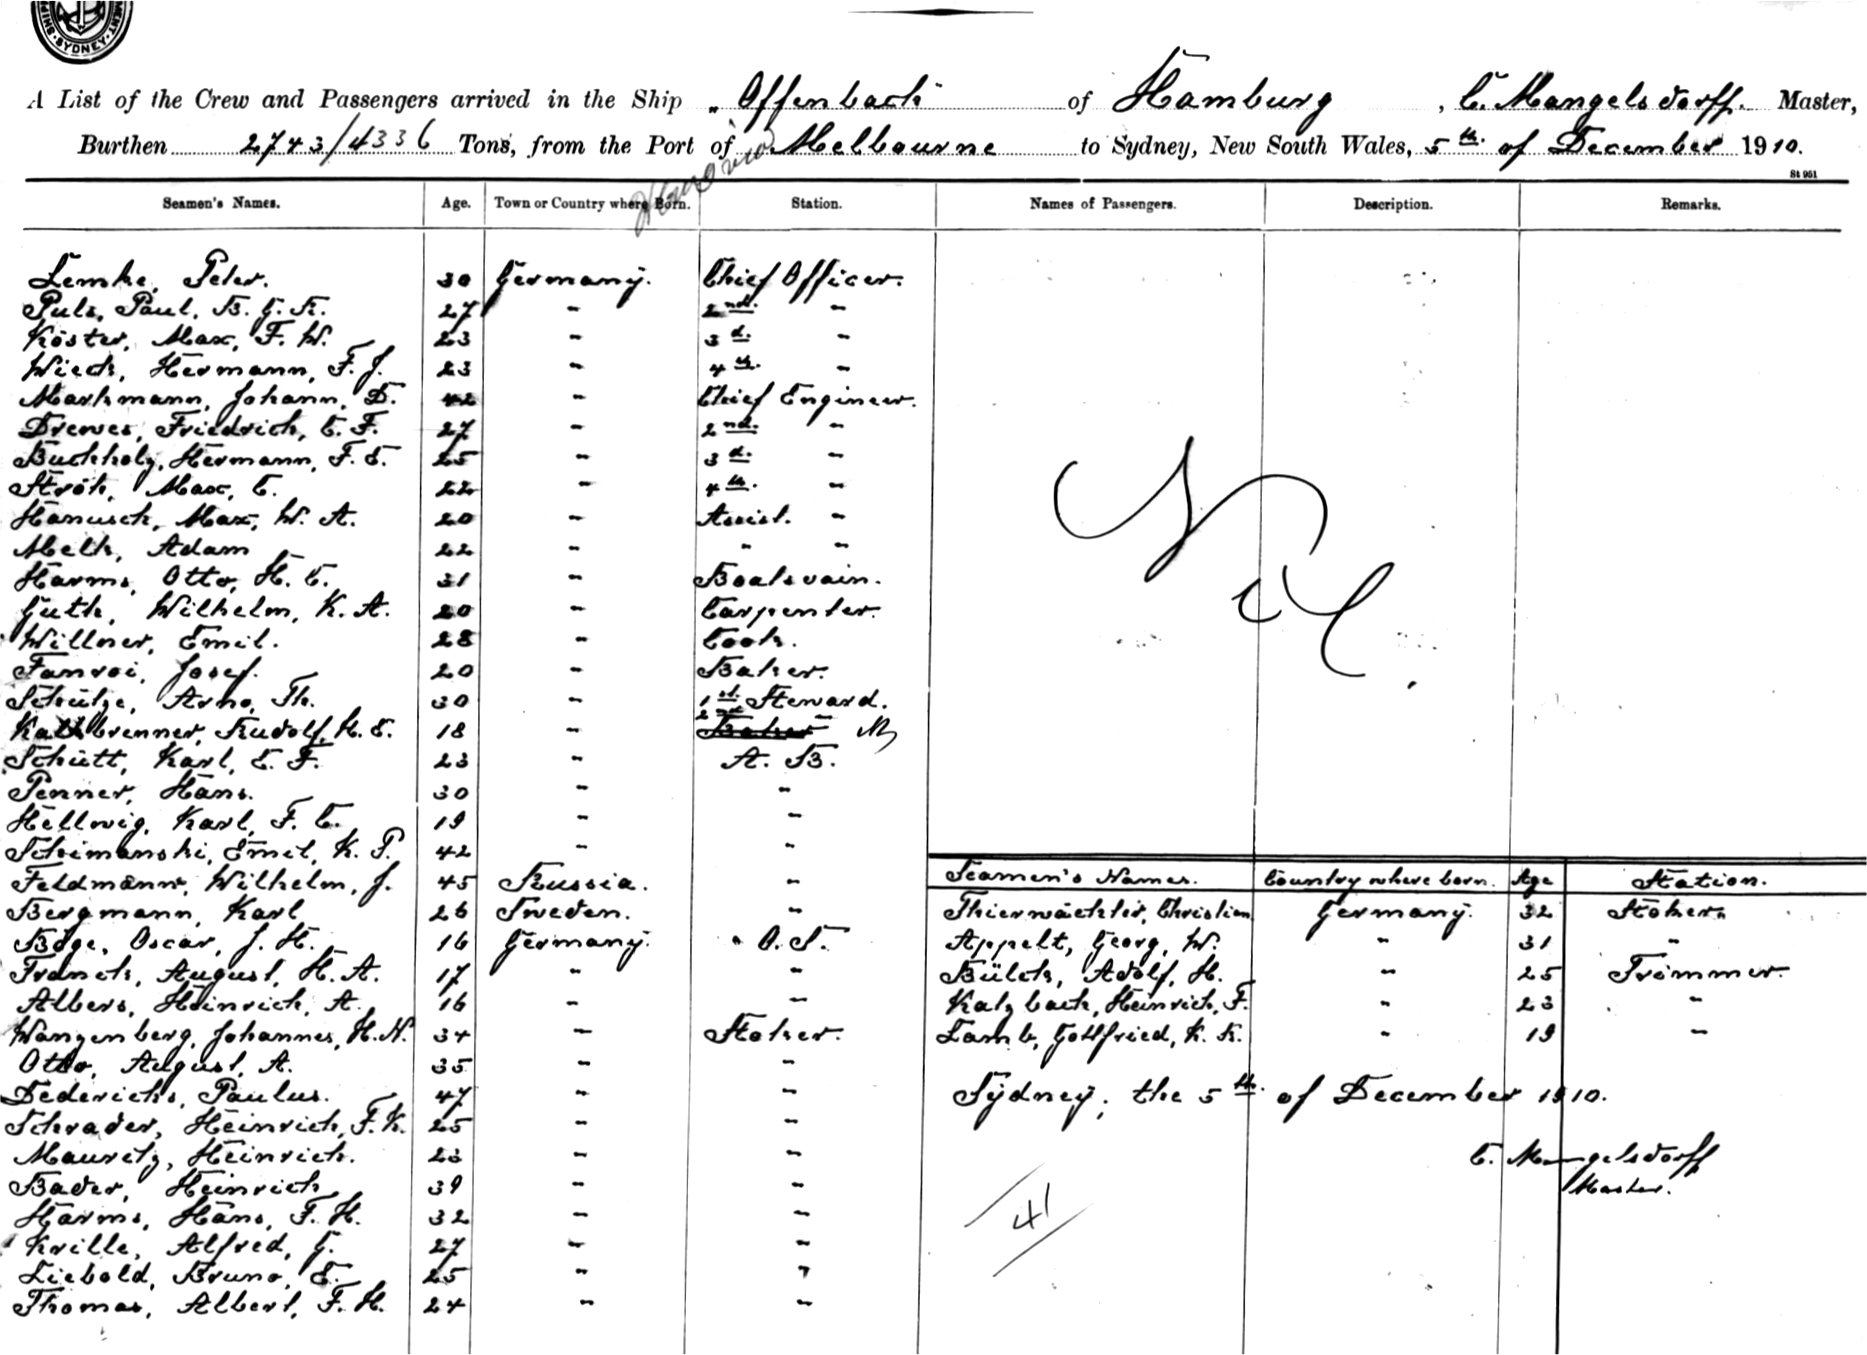 SHIPP MENT SYDNEY
A List of the Crew and Passengers arrived in the Ship „Offenbach" of Hamburg, C. Mangelsdorff. Master,
Burthen 2743/4336 Tons, from the Port of Melbourne to Sydney, New South Wales, 5th. of December 1910.
St 951
Seamen's Names. Age. Town or Country where Born. Station. Names of Passengers. Description. Remarks.
Lemke, Peter. 30 Germany. Chief Officer.
Puls, Paul, B. G. R. 27 " 2nd. "
Köster, Max, F. W. 23 " 3d. "
Wieck, Hermann, F. J. 23 " 4th. "
Markmann, Johann, D. 42 " Chief Engineer.
Drewes, Friedrich, C. F. 27 " 2nd. "
Buchholz, Hermann, F. E. 25 " 3d. "
Ströh, Max, C. 22 " 4th. "
Hanusch, Max, W. A. 20 " Assist. "
Melk, Adam 22 " " "
Harms, Otto, H. C. 31 " Boatsvain.
Guth, Wilhelm, K. A. 20 " Carpenter.
Willner, Emil. 28 " Cook.
Fanroi, Josef. 20 " Baker.
Schütze, Arno, Th. 30 " 1st. Steward.
Kaltbrenner, Rudolf, H. E. 18 " 2nd Baker "
Schütt, Karl, E. F. 23 " A. B.
Penner, Hans. 30 " "
Hellwig, Karl, F. C. 19 " "
Schimanski, Emil, K. P. 42 " "
Feldmann, Wilhelm, J. 45 Russia. "
Bergmann, Karl 26 Sweden. "
Böge, Oscar, J. H. 16 Germany. O. S.
Franck, August, H. A. 17 " "
Albers, Heinrich, A. 16 " "
Wangenberg, Johannes, H. N. 34 " Stoker.
Otto, August, A. 35 " "
Dederichs, Paulus. 47 " "
Schrader, Heinrich, F. K. 25 " "
Mauritz, Heinrich. 23 " "
Bader, Heinrich 39 " "
Harms, Hans, F. H. 32 " "
Krille, Alfred, G. 27 " "
Liebold, Bruno, E. 25 " "
Thomas, Albert, F. H. 24 " "
Nil.
Seamen's Names. Country where born. Age Station.
Thierwächter, Christian Germany. 32 Stoker.
Appelt, Georg, W. " 31 "
Bülck, Adolf, H. " 25 Trimmer.
Kalzbach, Heinrich, F. " 23 "
Lamb, Gottfried, K. K. " 19 "
Sydney, the 5th. of December 1910.
C. Mangelsdorff
Master.
41